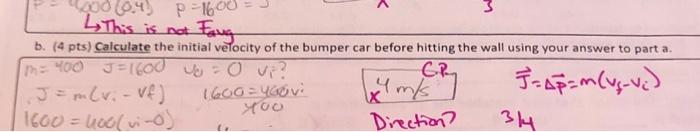 4000(0.4) p=1600 = J 3
↳This is not Favg
b. (4 pts) Calculate the initial velocity of the bumper car before hitting the wall using your answer to part a.
m=400 J=1600 v₀=0 vᵢ? 4 m/s C.P. J⃗=Δp⃗=m(v_f-v_i)
J=m(vᵢ-vf) 1600=400vᵢ x
400
1600=400(vᵢ-0) Direction? 3/4